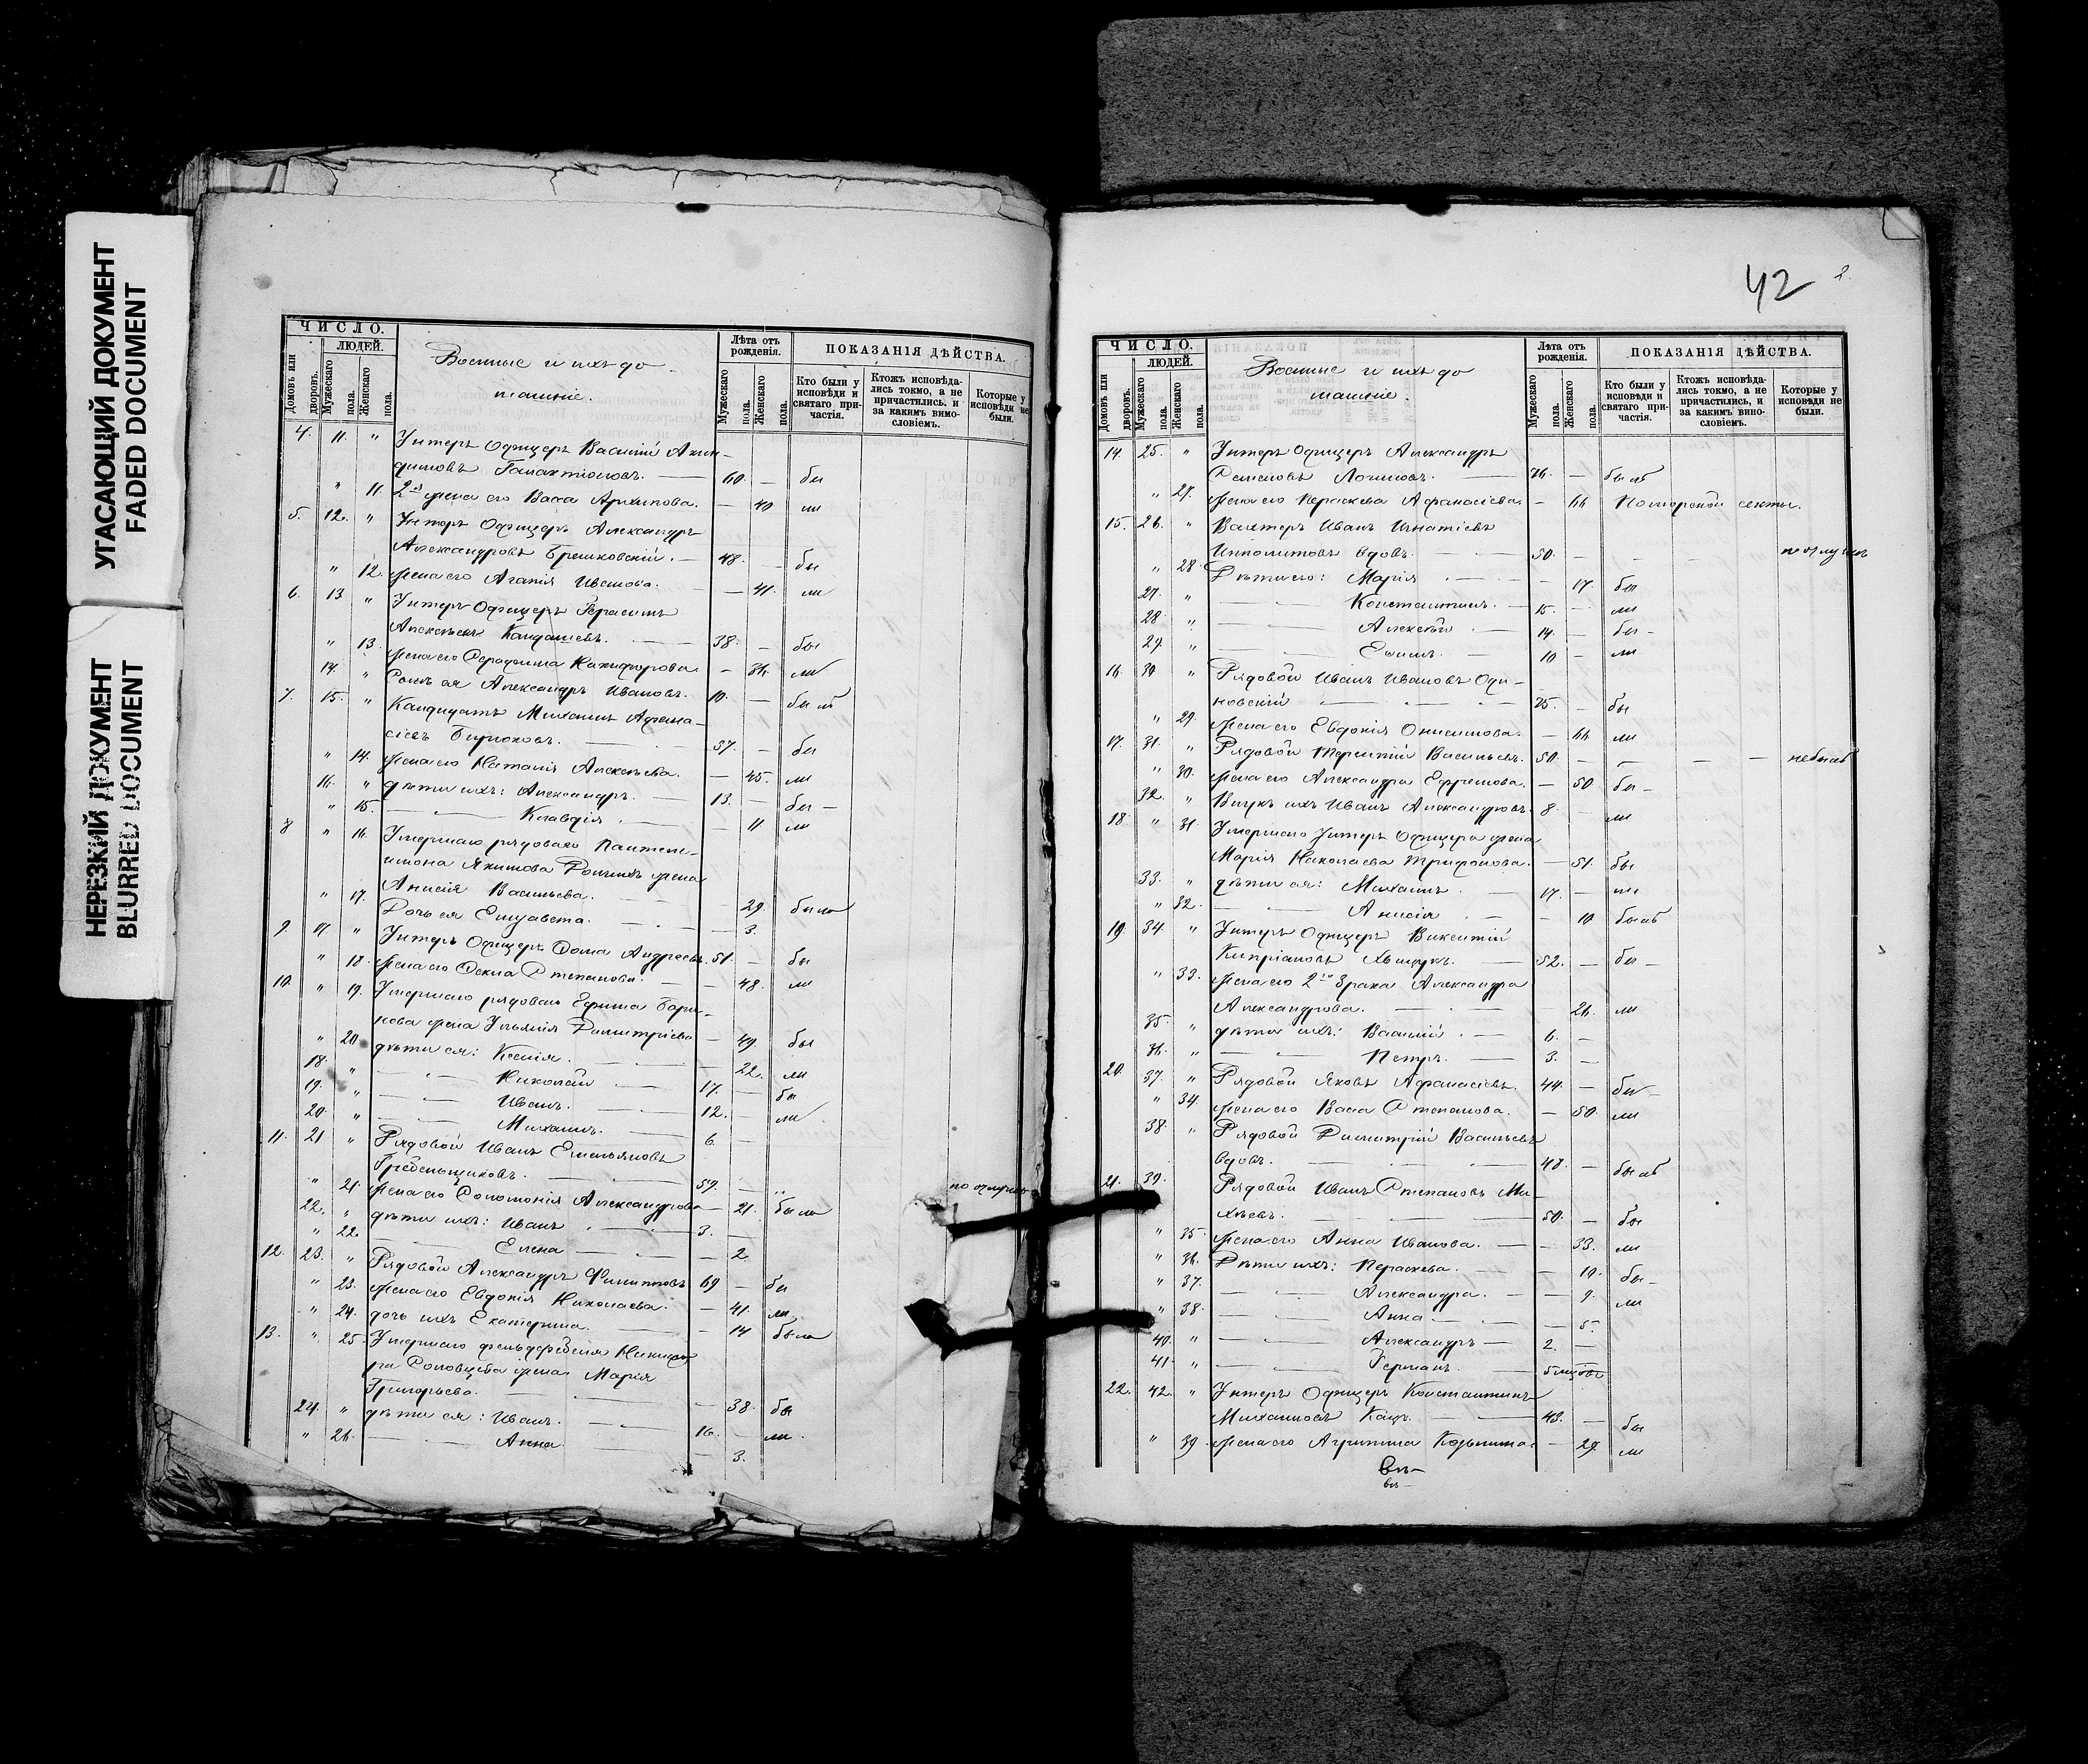 УГАСАЮЩИЙ ДОКУМЕНТ
FADED DOCUMENT
НЕРЕЗКИЙ ДОКУМЕНТ
BLURRED DOCUMENT
ЧИСЛО.
ЛЮДЕЙ.
Домовъ или дворовъ.
Мужескаго пола.
Женскаго пола.
Военные и ихъ до
машніе.
Лѣта отъ рожденія.
Мужескаго пола.
Женскаго пола.
ПОКАЗАНІЯ ДѢЙСТВА.
Кто были у исповѣди и святаго причастія.
Ктожъ исповѣдались токмо, а не причастились, и за какимъ винословіемъ.
Которые у исповѣди не были.
4. 11. " Унтеръ Офицеръ Василій Акин-
диновъ Галактіоновъ. 60. — бы
" 11. 2я жена его Васса Архипова. — 40 ли
5. 12. " Унтеръ Офицеръ Александръ
Александровъ Брешковскій. — 48. — бы
" 12. Жена его Агапія Иванова. — 41. ли
6. 13. " Унтеръ Офицеръ Герасимъ
Алексѣевъ Кандашевъ. 38. — бы
" 13. Жена его Серафима Никифорова — 36. ли
14. " Сынъ ея Александръ Ивановъ. 10. — былъ
7. 15. " Кандидатъ Михаилъ Афана-
сіевъ Бирюковъ. 57. — бы
" 14. Жена его Наталія Алексѣева. — 45. ли
16. " дѣти ихъ: Александръ. 13. — бы —
" 15. — Клавдія. — 11 ли
8 " 16. Умершаго рядоваго Пантеле-
имона Якимова жена
Анисія Васильева. — 29. была
" 17. Дочь ея Елизавета. — 3.
9. 17. " Унтеръ Офицеръ Ѳома Андреевъ. 51. — бы
" 18. Жена его Ѳекла Степанова. — 48. ли
10. " 19. Умершаго рядоваго Ефима Бари-
нова жена Ульянія Димитріева — 49. бы
" 20. дѣти ея: Ксенія. — 22. ли
18. " — Николай 17. — бы
19. " — Иванъ. 12. — ли
20. " — Михаилъ. 6. —
11. 21 " Рядовой Иванъ Емельяновъ
Гребеньщиковъ. 59. — " по отлучкѣ
" 21. Жена его Соломонія Александрова — 21. была
22. " дѣти ихъ: Иванъ 3. —
" 22. — Елена — 2.
12. 23. " Рядовой Александръ Филипповъ 69 — бы
" 23. Жена его Евдокія Николаева. — 41. ли
" 24. дочь ихъ Екатерина. — 14 была
13. " 25. Умершаго фельдфебеля Никифо-
ра Соловцева жена Марія
Григорьева. — 38. бы
24. " дѣти ея: Иванъ. 16. — ли.
" 26. — Анна — 3.
42 2.
ЧИСЛО.
ЛЮДЕЙ.
Домовъ или дворовъ.
Мужескаго пола.
Женскаго пола.
Военные и ихъ до
машніе.
Лѣта отъ рожденія.
Мужескаго пола.
Женскаго пола.
ПОКАЗАНІЯ ДѢЙСТВА.
Кто были у исповѣди и святаго причастія.
Ктожъ исповѣдались токмо, а не причастились, и за какимъ винословіемъ.
Которые у исповѣди не были.
14 25. " Унтеръ Офицеръ Александръ
Семеновъ Логиновъ. 76. — былъ
" 27. Жена его Параскева Афанасіева. — 66 Поморской секты.
15. 26. " Вахтеръ Иванъ Игнатіевъ
Ипполитовъ вдовъ. 50. — — — по отлучкѣ
" 28. Дѣти его: Марія — 17. бы
27. " — Константинъ. 15. — ли
28. " — Алексѣй 14. — бы —
29. " — Ефимъ. 10 — ли
16. 30 " Рядовой Иванъ Ивановъ Оди-
новскій 75. — бы
" 29. Жена его Евдокія Онисимова. — 66. ли
17. 31. " Рядовой Терентій Васильевъ. 50. — — — — небылъ
" 30. Жена его Александра Ефремова. — 50. бы —
32. " Внукъ ихъ Иванъ Александровъ. 8. — ли
18. " 31. Умершаго Унтеръ Офицера жена
Марія Николаева Трифонова. — 51. бы
33. " дѣти ея: Михаилъ. 17. — ли
" 32. — Анисія — 10 былъ
19. 34. " Унтеръ Офицеръ Викентій
Кипріановъ 52. — бы —
" 33. Жена его 2го брака Александра
Александрова. 26. ли
35. " дѣти ихъ: Василій. 6. —
36. " — Петръ. 3. —
20. 37. " Рядовой Яковъ Афанасіевъ. 44. — бы —
" 34. Жена его Васса Степанова. — 50. ли
38. " Рядовой Димитрій Васильевъ
вдовъ. 48. — былъ
21. 39. " Рядовой Иванъ Степановъ Ми-
хѣевъ. 50. — бы
" 35. Жена его Анна Иванова. — 33. ли
" 36. Дѣти ихъ: Параскева. — 10. бы —
" 37. — Александра. — 9. ли
" 38. — Анна. — 5.
40. " — Александръ 2. —
41. " — Германъ. 5 мѣсяц.
22. 42. " Унтеръ Офицеръ Константинъ
Михаиловъ Кацъ. 43. — бы
" 39. Жена его Агрипина Козьмина. — 29. ли